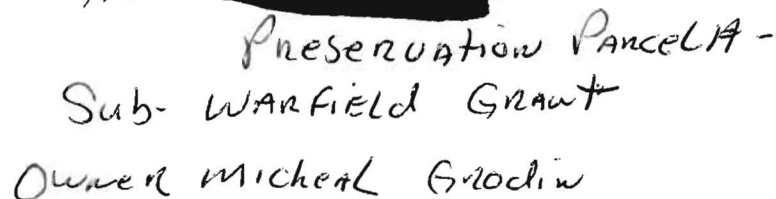 Preservation Parcel A -
Sub- WARFIELD GRANT
Owner Micheal Grodin